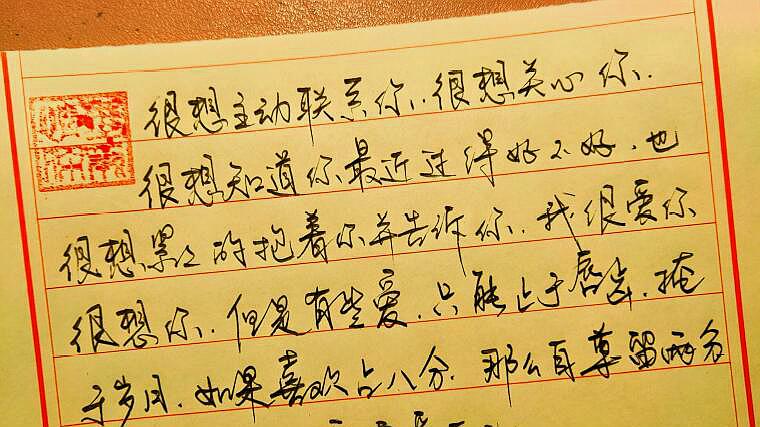 很想主动联系你.很想关心你.
很想知道你最近过得好不好.也
很想紧紧的抱着你并告诉你.我很爱你
很想你.但是有些爱.只能止于唇齿.掩
于岁月.如果喜欢占八分.那么自尊留两分